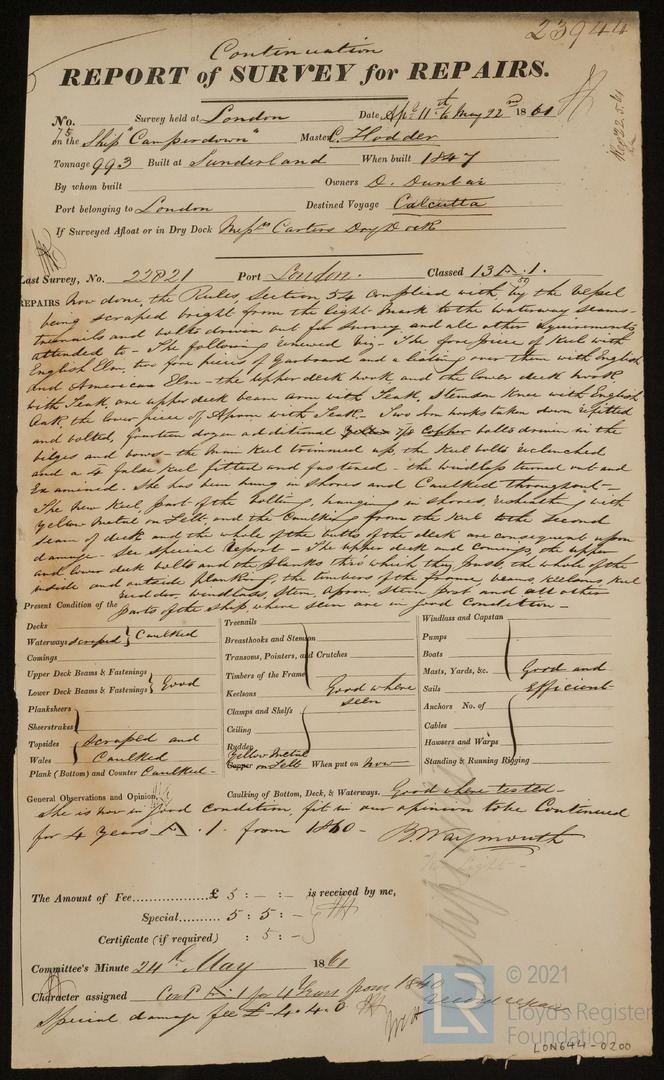 23944
Continuation
REPORT of SURVEY for REPAIRS.
No. 75 Survey held at London Date, Apl. 11th to May 22nd 1861
on the Ship "Camperdown" Master C. Hodder
Tonnage 993 Built at Sunderland When built 1847
By whom built Owners D. Dunbar
Port belonging to London Destined Voyage Calcutta
If Surveyed Afloat or in Dry Dock Messrs Carters Dry Dock
Last Survey, No. 22821 Port London. Classed 13 A.1.
REPAIRS Now done, the Rules, Section 54 complied with by the vessel
being scraped bright from the light mark to the waterway seams-
treenails and bolts driven out for survey and all other requirements
attended to - The following renewed viz - The fore piece of Keel with
English Elm, two fore pieces of Garboard and a listing over them with English
and American Elm - the upper deck hook, and the lower deck hook
with Teak, one upper deck beam arm with Teak, Stemson Knee with English
Oak, the lower piece of Apron with Teak - Two Iron hooks taken down refitted
and bolted, fourteen dozen additional 7/8 Copper bolts driven in the
bilges and bows - the main Keel trimmed up, the keel bolts reclenched
and a false keel fitted and fastened - the windlass turned out and
Examined. She has been hung in shores and Caulked throughout -
The new Keel, part of the bolting, hanging in shores, resheathing with
yellow Metal on Felt, and the Caulking from the Keel to the second
seam of deck and the whole of the butts of the deck are consequent upon
damage - See Special Report - The upper deck and comings, the upper
and lower deck bolts and the planks thro which they pass, the whole of the
inside and outside planking, the timbers of the frame, beams, keelsons, keel
rudder, windlass, Stem, Apron, Stern post and all other
Present Condition of the parts of the ship, where seen are in good Condition -
Decks
Waterways scraped Caulked
Comings
Upper Deck Beams & Fastenings
Lower Deck Beams & Fastenings Good
Planksheers
Sheerstrakes
Topsides Scraped and
Wales Caulked
Plank (Bottom) and Counter Caulked -
Treenails
Breasthooks and Stemson
Transoms, Pointers, and Crutches
Timbers of the Frame
Keelsons Good where
seen
Clamps and Shelfs
Ceiling
Rudder
Yellow Metal
Copper on Felt When put on Now
Windlass and Capstan
Pumps
Boats
Masts, Yards, &c. Good and
Sails Efficient
Anchors No. of
Cables
Hawsers and Warps
Standing & Running Rigging
Caulking of Bottom, Deck, & Waterways. Good where tested -
General Observations and Opinion,
She is now in good condition, fit in our opinion to be Continued
for 4 years A.1. from 1860 - B Waymouth
The Amount of Fee £ 5 : - : - is received by me,
Special 5 : 5 : -
Certificate (if required) : 5 : -
Committee's Minute 24th May 1861
Character assigned Cont A.1 for 4 Years from 1860
Special damage fee £ 4.4.0
LR
© 2021
Lloyd's Register
Foundation
LON644-0200